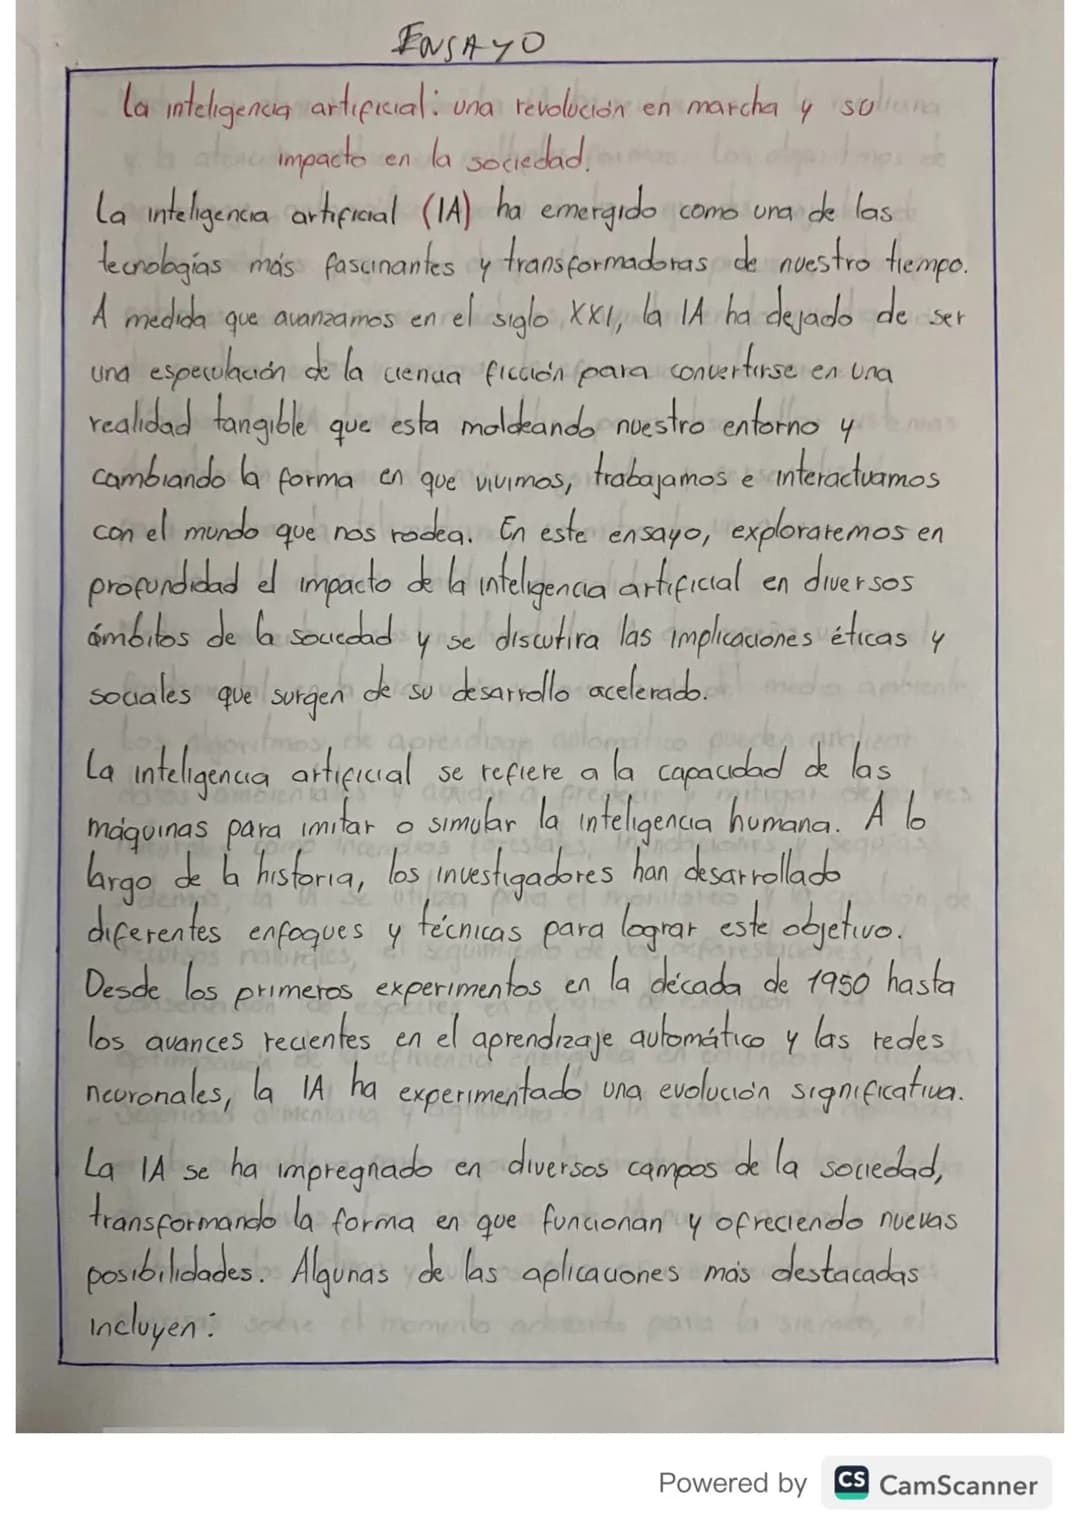 ENSAYO
La inteligencia artificial: una revolución en marcha y su
impacto en la sociedad.
La inteligencia artificial (IA) ha emergido como una de las
tecnologías más fascinantes y transformadoras de nuestro tiempo.
A medida que avanzamos en el siglo XXI, la IA ha dejado de ser
una especulación de la ciencia ficción para convertirse en una
realidad tangible que esta moldeando nuestro entorno y
cambiando la forma en que vivimos, trabajamos e interactuamos
con el mundo que nos rodea. En este ensayo, exploraremos en
profundidad el impacto de la inteligencia artificial en diversos
ámbitos de la sociedad y se discutira las implicaciones éticas y
sociales que surgen de su desarrollo acelerado.
La inteligencia artificial se refiere a la capacidad de las
máquinas para imitar o simular la inteligencia humana. A lo
largo de la historia, los investigadores han desarrollado
diferentes enfoques y técnicas para lograr este objetivo.
Desde los primeros experimentos en la década de 1950 hasta
los avances recientes en el aprendizaje automático y las redes
neuronales, la IA ha experimentado una evolución significativa.
La IA se ha impregnado en diversos campos de la sociedad,
transformando la forma en que funcionan y ofreciendo nuevas
posibilidades. Algunas de las aplicaciones más destacadas
incluyen:
Powered by CS CamScanner